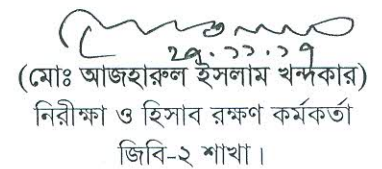 ২৭.১১.১৭
(মোঃ আজহারুল ইসলাম খন্দকার)
নিরীক্ষা ও হিসাব রক্ষণ কর্মকর্তা
জিবি-২ শাখা।